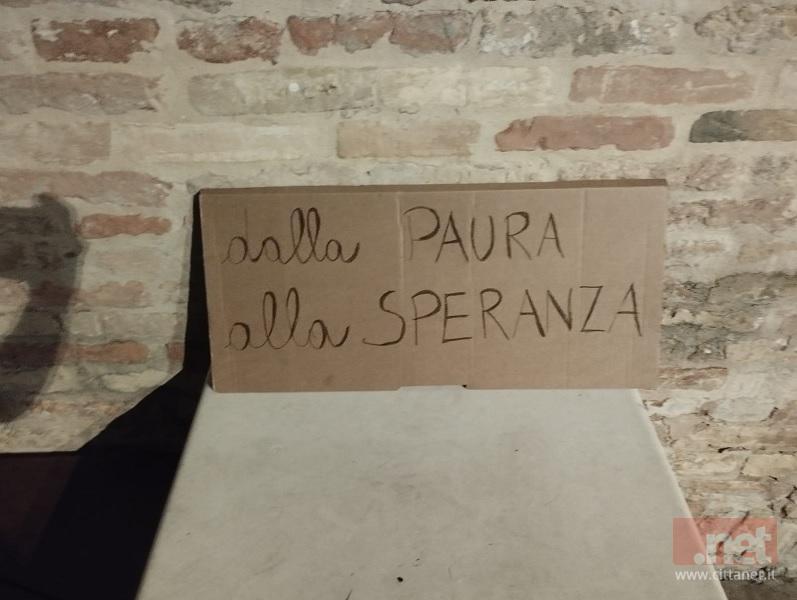 dalla PAURA
alla SPERANZA
.net
www.cittanet.it